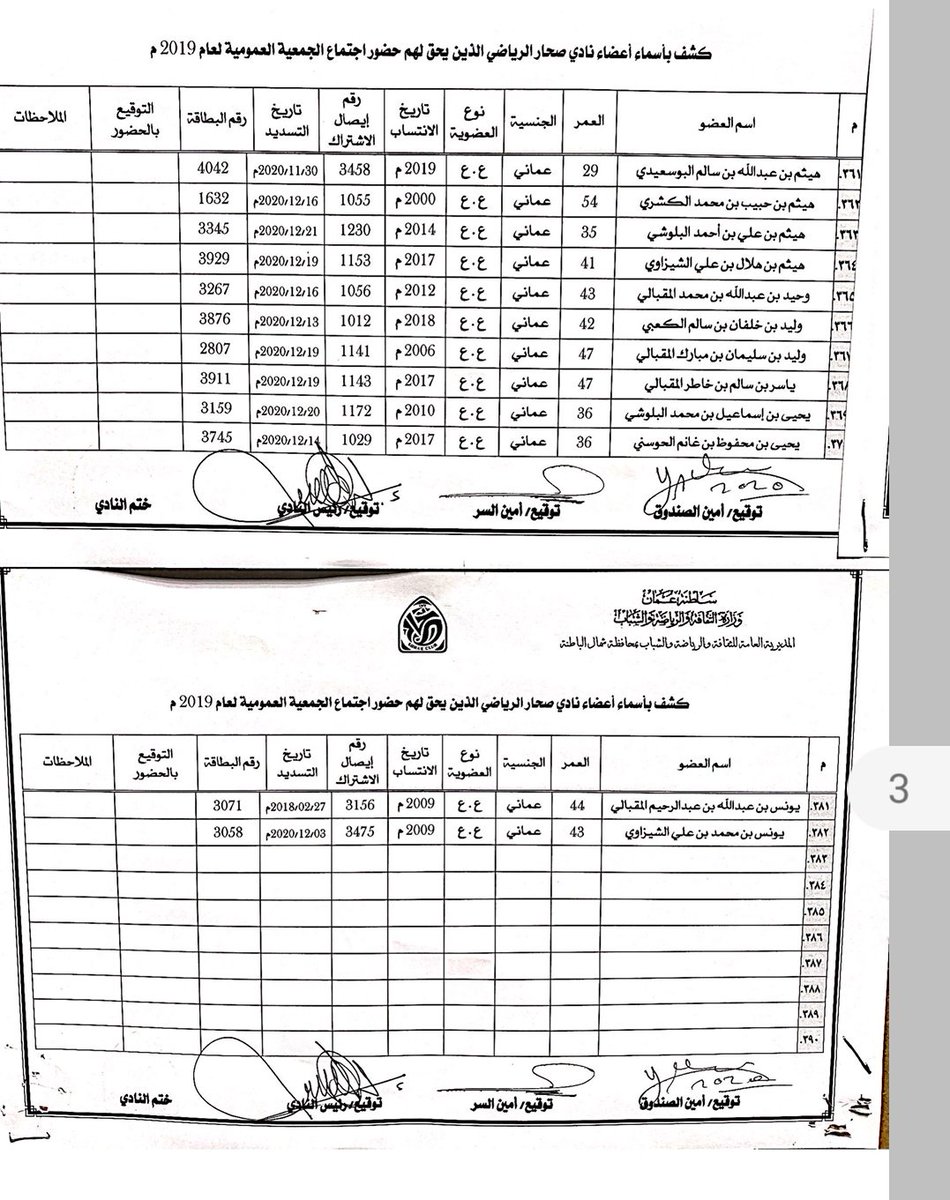 كشف بأسماء أعضاء نادي صحار الرياضي الذين يحق لهم حضور اجتماع الجمعية العمومية لعام 2019 م
م اسم العضو العمر الجنسية نوع العضوية تاريخ الانتساب رقم إيصال الاشتراك تاريخ التسديد رقم البطاقة التوقيع بالحضور الملاحظات
٣٦١. هيثم بن عبدالله بن سالم البوسعيدي 29 عماني ع.ع 2019 م 3458 2020/11/30م 4042
٣٦٢. هيثم بن حبيب بن محمد الكشري 54 عماني ع.ع 2000 م 1055 2020/12/16م 1632
٣٦٣. هيثم بن علي بن أحمد البلوشي 35 عماني ع.ع 2014 م 1230 2020/12/21م 3345
٣٦٤. هيثم بن هلال بن علي الشيزاوي 41 عماني ع.ع 2017 م 1153 2020/12/19م 3929
٣٦٥. وحيد بن عبدالله بن محمد المقبالي 43 عماني ع.ع 2012 م 1056 2020/12/16م 3267
٣٦٦. وليد بن خلفان بن سالم الكعبي 42 عماني ع.ع 2018 م 1012 2020/12/13م 3876
٣٦٧. وليد بن سليمان بن مبارك المقبالي 47 عماني ع.ع 2006 م 1141 2020/12/19م 2807
٣٦٨. ياسر بن سالم بن خاطر المقبالي 47 عماني ع.ع 2017 م 1143 2020/12/19م 3911
٣٦٩. يحيى بن إسماعيل بن محمد البلوشي 36 عماني ع.ع 2010 م 1172 2020/12/20م 3159
٣٧ يحيى بن محفوظ بن غانم الحوسني 36 عماني ع.ع 2017 م 1029 2020/12/14م 3745
2020
توقيع/ أمين الصندوق توقيع/ أمين السر توقيع/ رئيس النادي ختم النادي
سلطنة عمان
وزارة الثقافة والرياضة والشباب
المديرية العامة للثقافة والرياضة والشباب بمحافظة شمال الباطنة
كشف بأسماء أعضاء نادي صحار الرياضي الذين يحق لهم حضور اجتماع الجمعية العمومية لعام 2019 م
م اسم العضو العمر الجنسية نوع العضوية تاريخ الانتساب رقم إيصال الاشتراك تاريخ التسديد رقم البطاقة التوقيع بالحضور الملاحظات
٣٨١. يونس بن عبدالله بن عبدالرحيم المقبالي 44 عماني ع.ع 2009 م 3156 2018/02/27م 3071
٣٨٢. يونس بن محمد بن علي الشيزاوي 43 عماني ع.ع 2009 م 3475 2020/12/03م 3058
٣٨٣.
٣٨٤.
٣٨٥.
٣٨٦.
٣٨٧.
٣٨٨.
٣٨٩.
٣٩٠.
2020
توقيع/ أمين الصندوق توقيع/ أمين السر توقيع/ رئيس النادي ختم النادي
3